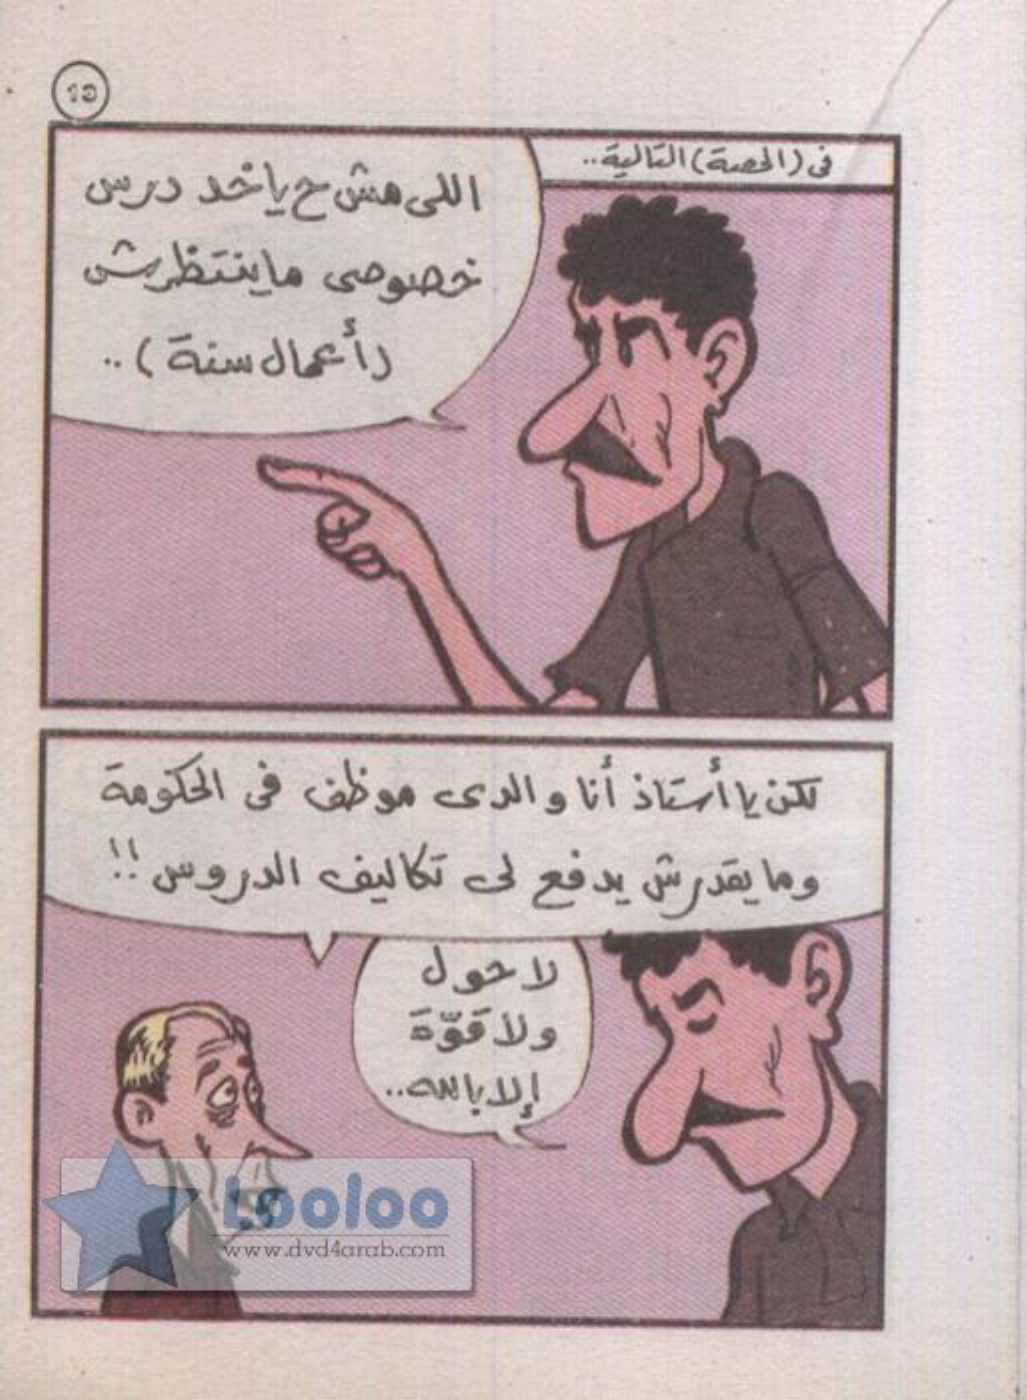 13
فى (الحصة) التالية..
اللى مش ح ياخد درس
خصوصى ماينتظرش
(أعمال سنة) ..
لكن يا أستاذ أنا والدى موظف فى الحكومة
وما يقدرش يدفع لى تكاليف الدروس !!
لا حول
ولا قوّة
إلا بالله..
Looloo
www.dvd4arab.com